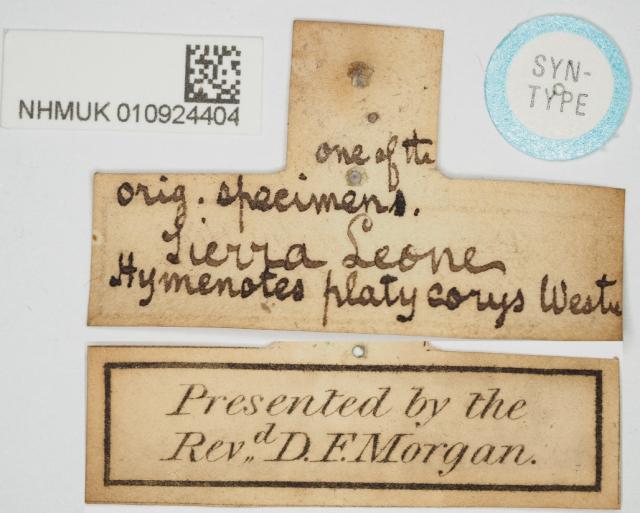 NHMUK 010924404
SYN-
TYPE
one of the
orig. specimens.
Sierra Leone
Hymenotes platycorys Westw
Presented by the
Rev,,d D. F. Morgan.